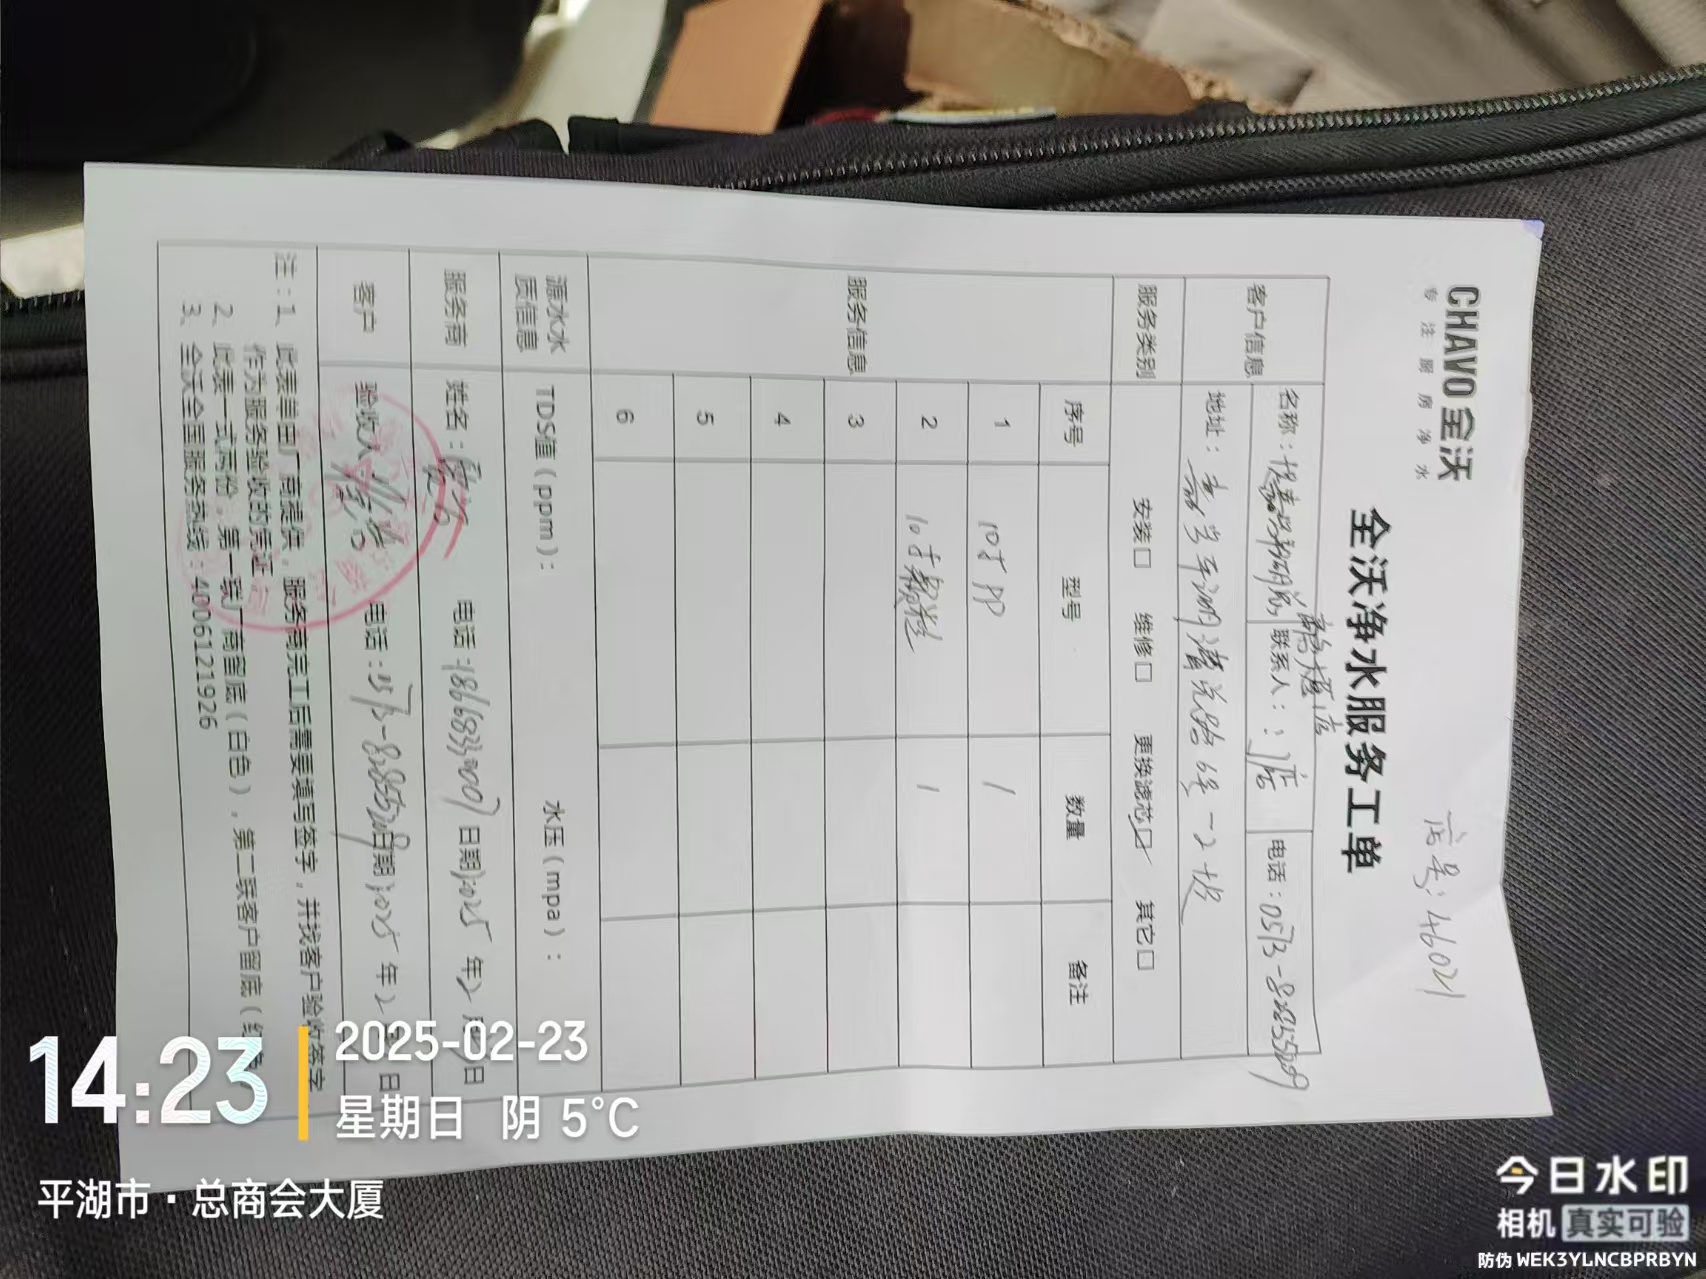 CHAVO 全沃
专注厨房净水
店号: 46021
全沃净水服务工单
客户信息
名称:
酒店
联系人:
店
电话: 0573-82855209
地址:
路 6号 1-2楼
服务类别
安装□ 维修□ 更换滤芯☑ 其它□
服务信息
序号 型号 数量 备注
1 10寸PP 1
2 10寸颗粒 1
3
4
5
6
源水水质信息
TDS值(ppm): 水压(mpa):
服务商
姓名:
电话: 18666833007
日期: 2025年2月 日
客户
验收人
电话: 0573-82855209
日期: 2025年2月 日
注: 1、此表单由厂商提供, 服务商完工后需要填写签字, 并找客户验收签字
作为服务验收的凭证
2、此表一式两份, 第一联厂商留底(白色), 第二联客户留底(红
3、全沃全国服务热线: 4006121926
14:23
2025-02-23
星期日 阴 5°C
平湖市·总商会大厦
今日水印
相机 真实可验
防伪 WEK3YLNCBPRBYN